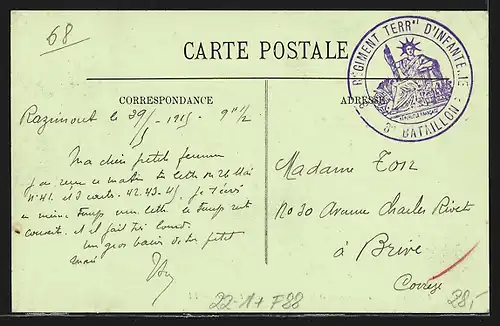 68
CARTE POSTALE
RÉGIMENT TERR" D'INFANTERIE
3e BATAILLON
CORRESPONDANCE
ADRESSE
1915 - 9h 1/2
Ma chère petite femme
J'ai reçu ce matin ta lettre du 26 Mai
n° 41. et 3 cartes. 42.43.45. Je t'écris
en même temps une lettre. Le temps est
couvert. et il fait très lourd.
Un gros baiser de ton petit
mari
Madame
No 30 Avenue Charles Rivet
à Brive
Corrèze
22-1+ F88
28,-